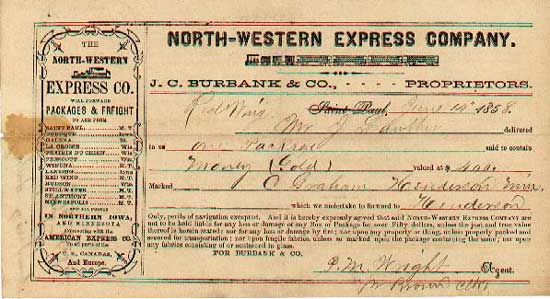 THE
NORTH-WESTERN
EXPRESS CO.
WILL FORWARD
PACKAGES & FREIGHT
TO AND FROM
SAINT PAUL, M. T.
DUBUQUE,
GALENA, Ill.
LA CROSSE Wis.
PRAIRIE DU CHIEN Wis.
PRESCOTT Wis.
WINONA, M. T.
LANSING Iowa
RED WING M. T.
HUDSON Wis.
STILLWATER M. T.
ST. ANTHONY M. T.
MINNEAPOLIS M. T.
IN NORTHERN IOWA,
AND MINNESOTA
Connecting with the
AMERICAN EXPRESS CO.
To all parts of the
U. S., CANADAS,
And Europe.
NORTH-WESTERN EXPRESS COMPANY.
J. C. BURBANK & CO., - - - - PROPRIETORS.
Red Wing Saint Paul, June 14 1858
Mr. delivered
to us one Package said to contain
Money (Gold) valued at $ 400.
Marked J C Graham Henderson Min
which we undertake to forward to Henderson
Only, perils of navigation excepted. And it is hereby expressly agreed that said NORTH-WESTERN EXPRESS COMPANY are
not to be held liable for any loss or damage of any Box or Package for over Fifty dollars, unless the just and true value
thereof is herein stated: nor for any loss or damage by fire; nor upon any property or thing, unless properly packed and
secured for transportation; nor upon fragile fabrics, unless so marked upon the package containing the same; nor upon
any fabrics consisting of or contained in glass.
FOR BURBANK & CO.
P. M. Wright Agent.
pr Brown clk